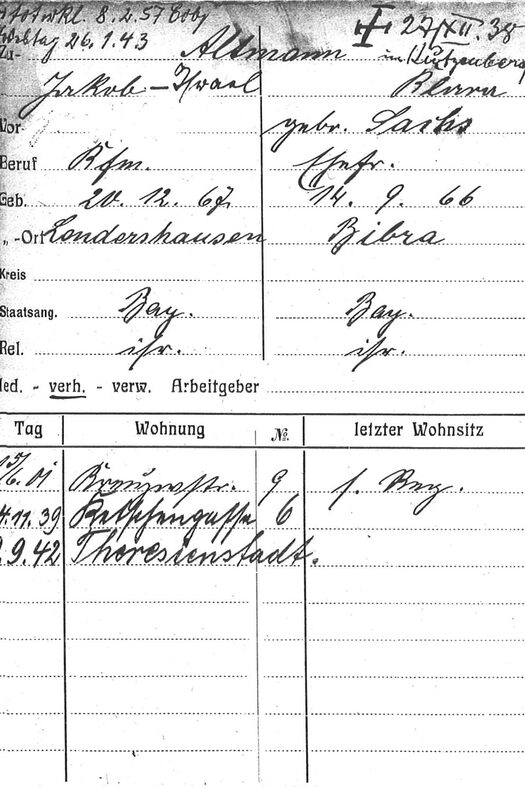 Amtotwkl. 8.2.57 Cobg
Todestag 26.1.43 ✝ 27/XII. 38
Zu- Altmann in Kutzenberg
Jakob – Israel Klara
Vor gebr. Sachs
Beruf Kfm. Ehefr.
Geb. 20. 12. 67 14. 9. 66
" -Ort Sondershausen Bibra
Kreis
Staatsang. Bay. Bay.
Rel. isr. isr.
led. - verh. - verw. Arbeitgeber
Tag Wohnung №. letzter Wohnsitz
15/6. 01 9 s. Reg.
4.11.39 Ketschengasse 6
9.9.42 Theresienstadt.